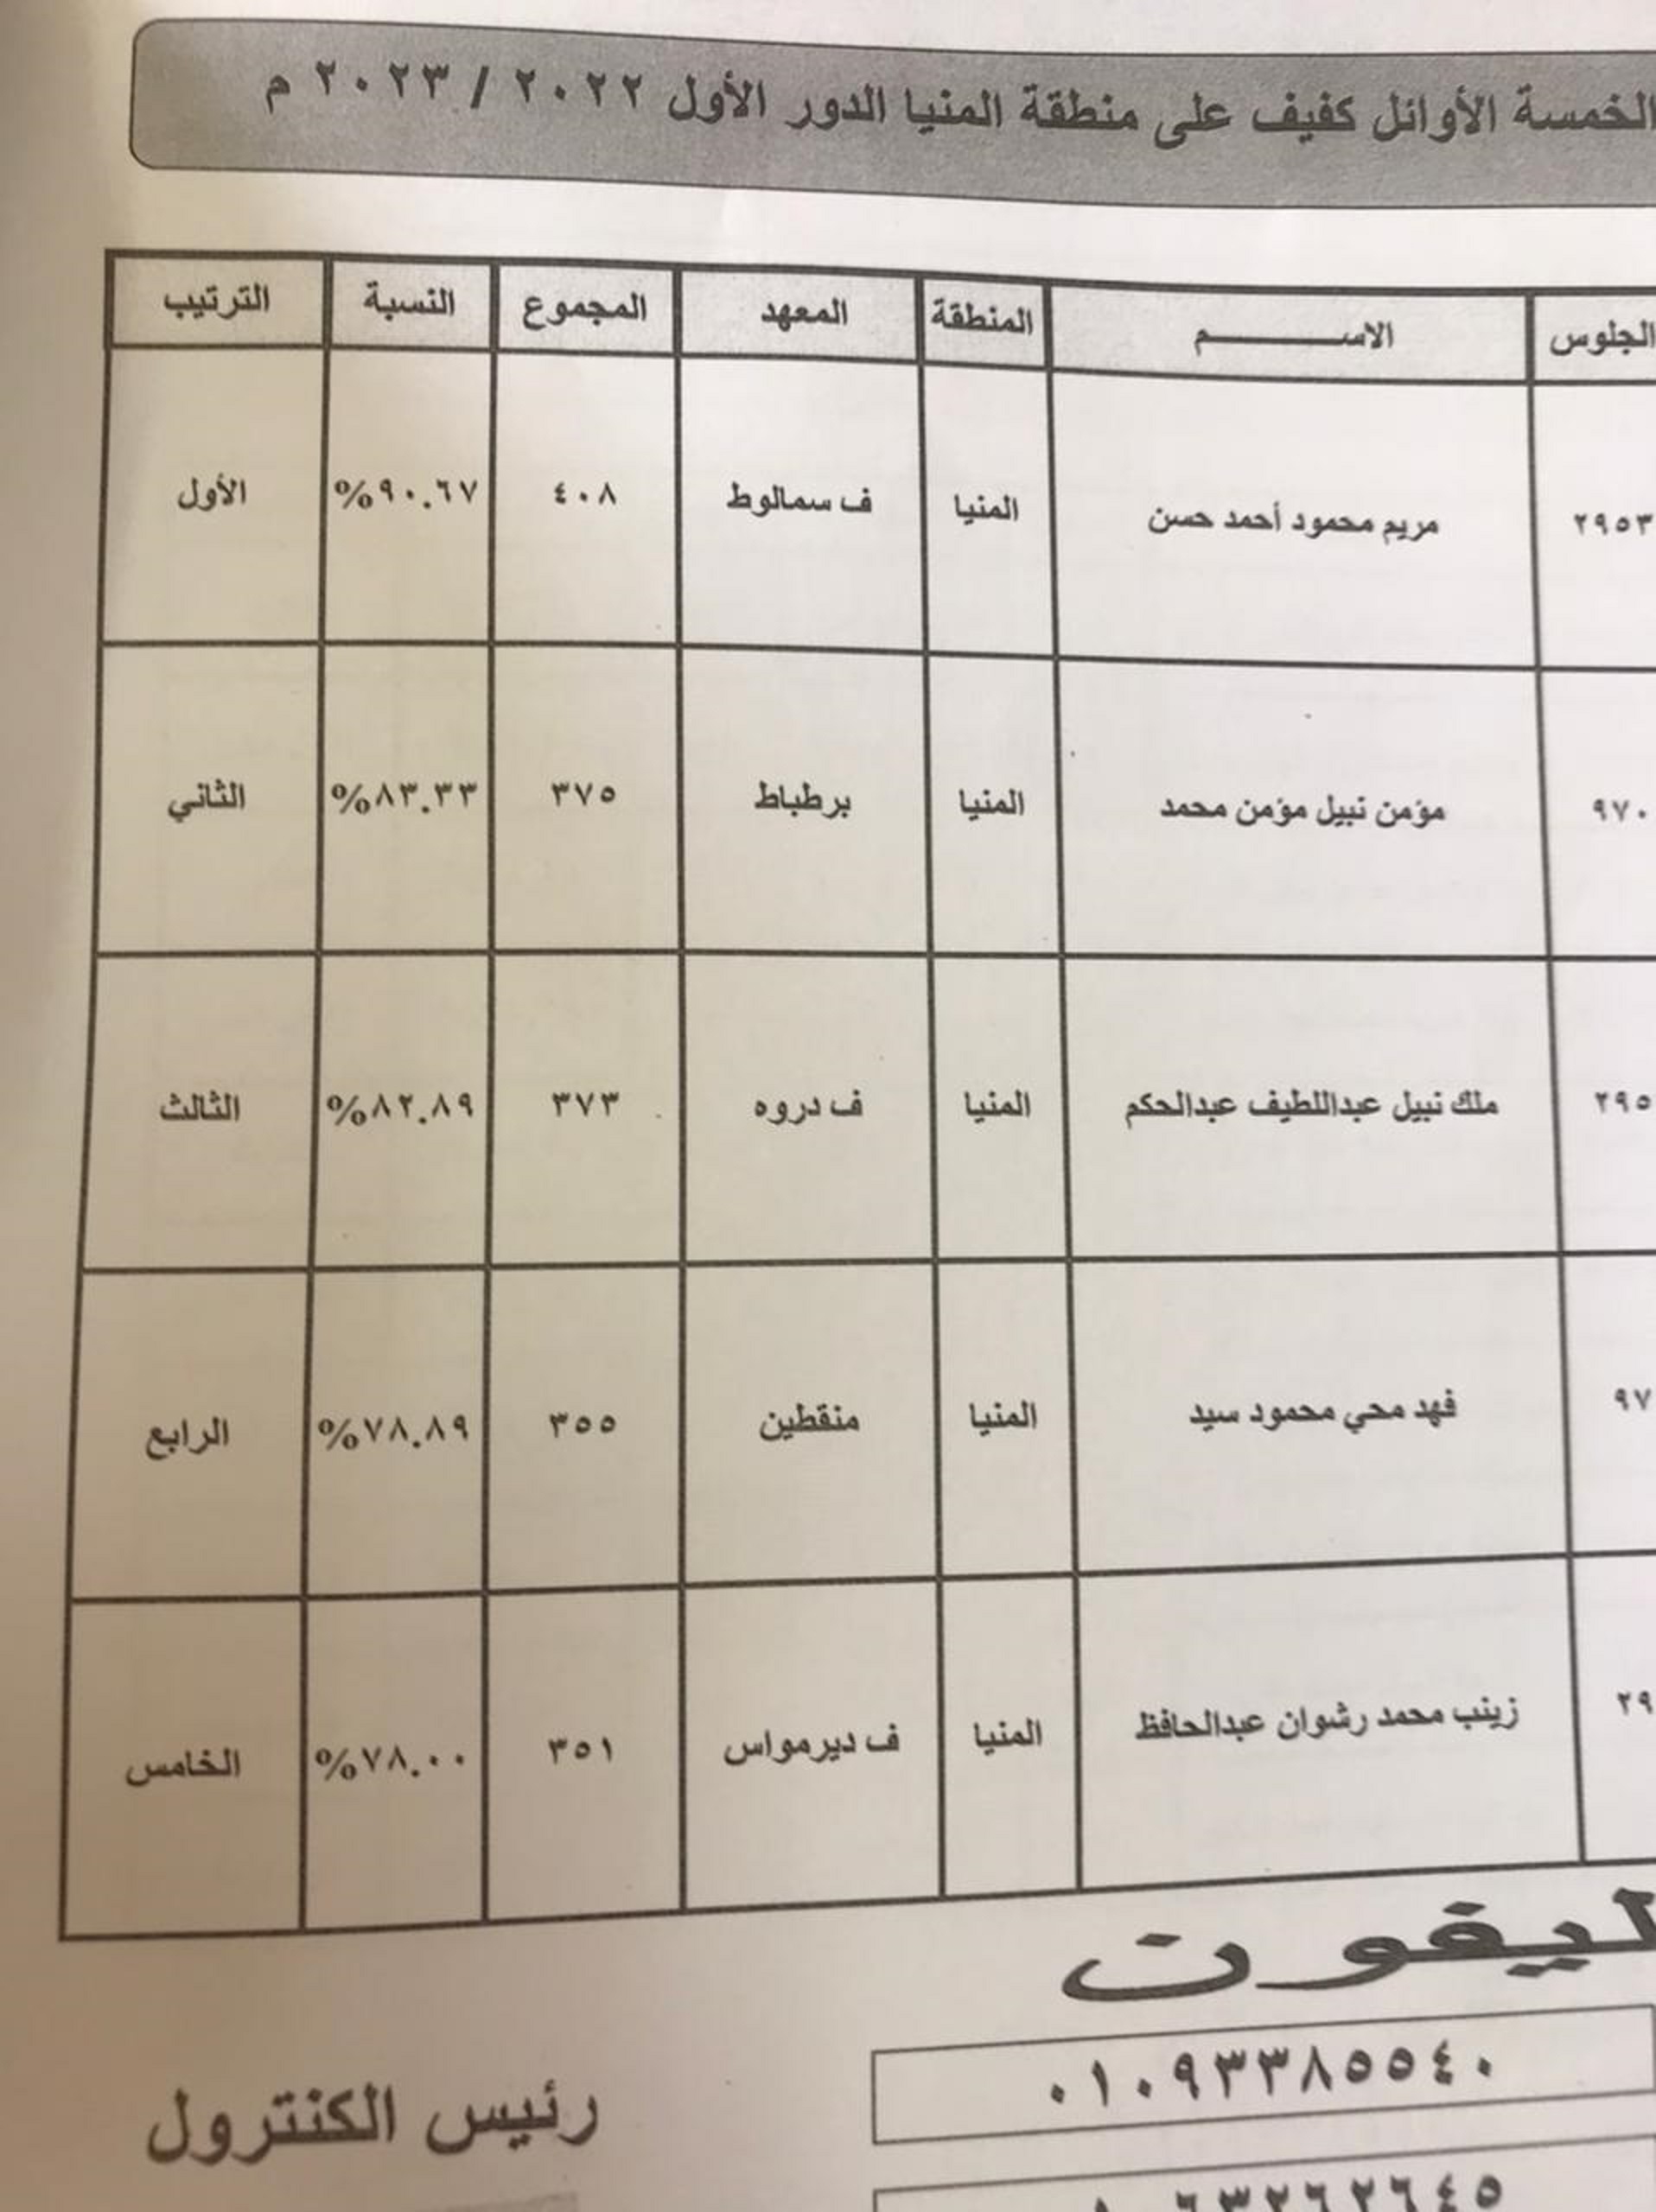 الخمسة الأوائل كفيف على منطقة المنيا الدور الأول ٢٠٢٢ / ٢٠٢٣ م
الجلوس الاســـــم المنطقة المعهد المجموع النسبة الترتيب
٢٩٥٣ مريم محمود أحمد حسن المنيا ف سمالوط ٤٠٨ ٩٠.٦٧% الأول
٩٧٠ مؤمن نبيل مؤمن محمد المنيا برطباط ٣٧٥ ٨٣.٣٣% الثاني
٢٩٥ ملك نبيل عبداللطيف عبدالحكم المنيا ف دروه ٣٧٣ ٨٢.٨٩% الثالث
٩٧ فهد محي محمود سيد المنيا منقطين ٣٥٥ ٧٨.٨٩% الرابع
٢٩ زينب محمد رشوان عبدالحافظ المنيا ف ديرمواس ٣٥١ ٧٨.٠٠% الخامس
ليفون
٠١٠٩٣٣٨٥٥٤٠
رئيس الكنترول